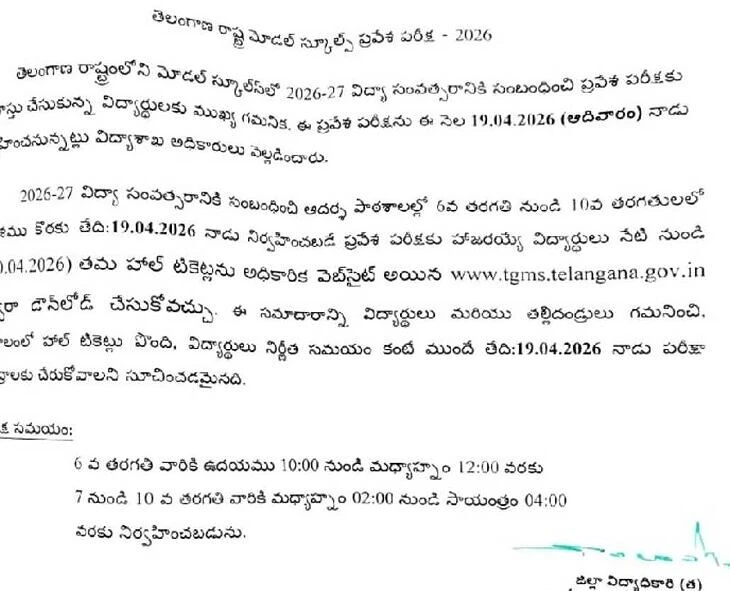 తెలంగాణ రాష్ట్ర మోడల్ స్కూల్స్ ప్రవేశ పరీక్ష - 2026
తెలంగాణ రాష్ట్రంలోని మోడల్ స్కూల్స్‌లో 2026-27 విద్యా సంవత్సరానికి సంబంధించి ప్రవేశ పరీక్షకు
చేసుకున్న విద్యార్థులకు ముఖ్య గమనిక. ఈ ప్రవేశ పరీక్షను ఈ నెల 19.04.2026 (ఆదివారం) నాడు
విద్యాశాఖ అధికారులు వెల్లడించారు.
2026-27 విద్యా సంవత్సరానికి సంబంధించి ఆదర్శ పాఠశాలల్లో 6వ తరగతి నుండి 10వ తరగతులలో
కొరకు తేది:19.04.2026 నాడు నిర్వహించబడే ప్రవేశ పరీక్షకు హాజరయ్యే విద్యార్థులు నేటి నుండి
0.04.2026) తమ హాల్ టికెట్లను అధికారిక వెబ్‌సైట్ అయిన www.tgms.telangana.gov.in
డౌన్‌లోడ్ చేసుకోవచ్చు. ఈ సమాచారాన్ని విద్యార్థులు మరియు తల్లిదండ్రులు గమనించి,
హాల్ టికెట్లు పొంది, విద్యార్థులు నిర్ణీత సమయం కంటే ముందే తేది:19.04.2026 నాడు పరీక్షా
చేరుకోవాలని సూచించడమైనది.
సమయం:
6 వ తరగతి వారికి ఉదయము 10:00 నుండి మధ్యాహ్నం 12:00 వరకు
7 నుండి 10 వ తరగతి వారికి మధ్యాహ్నం 02:00 నుండి సాయంత్రం 04:00
వరకు నిర్వహించబడును.
జిల్లా విద్యాధికారి (త)